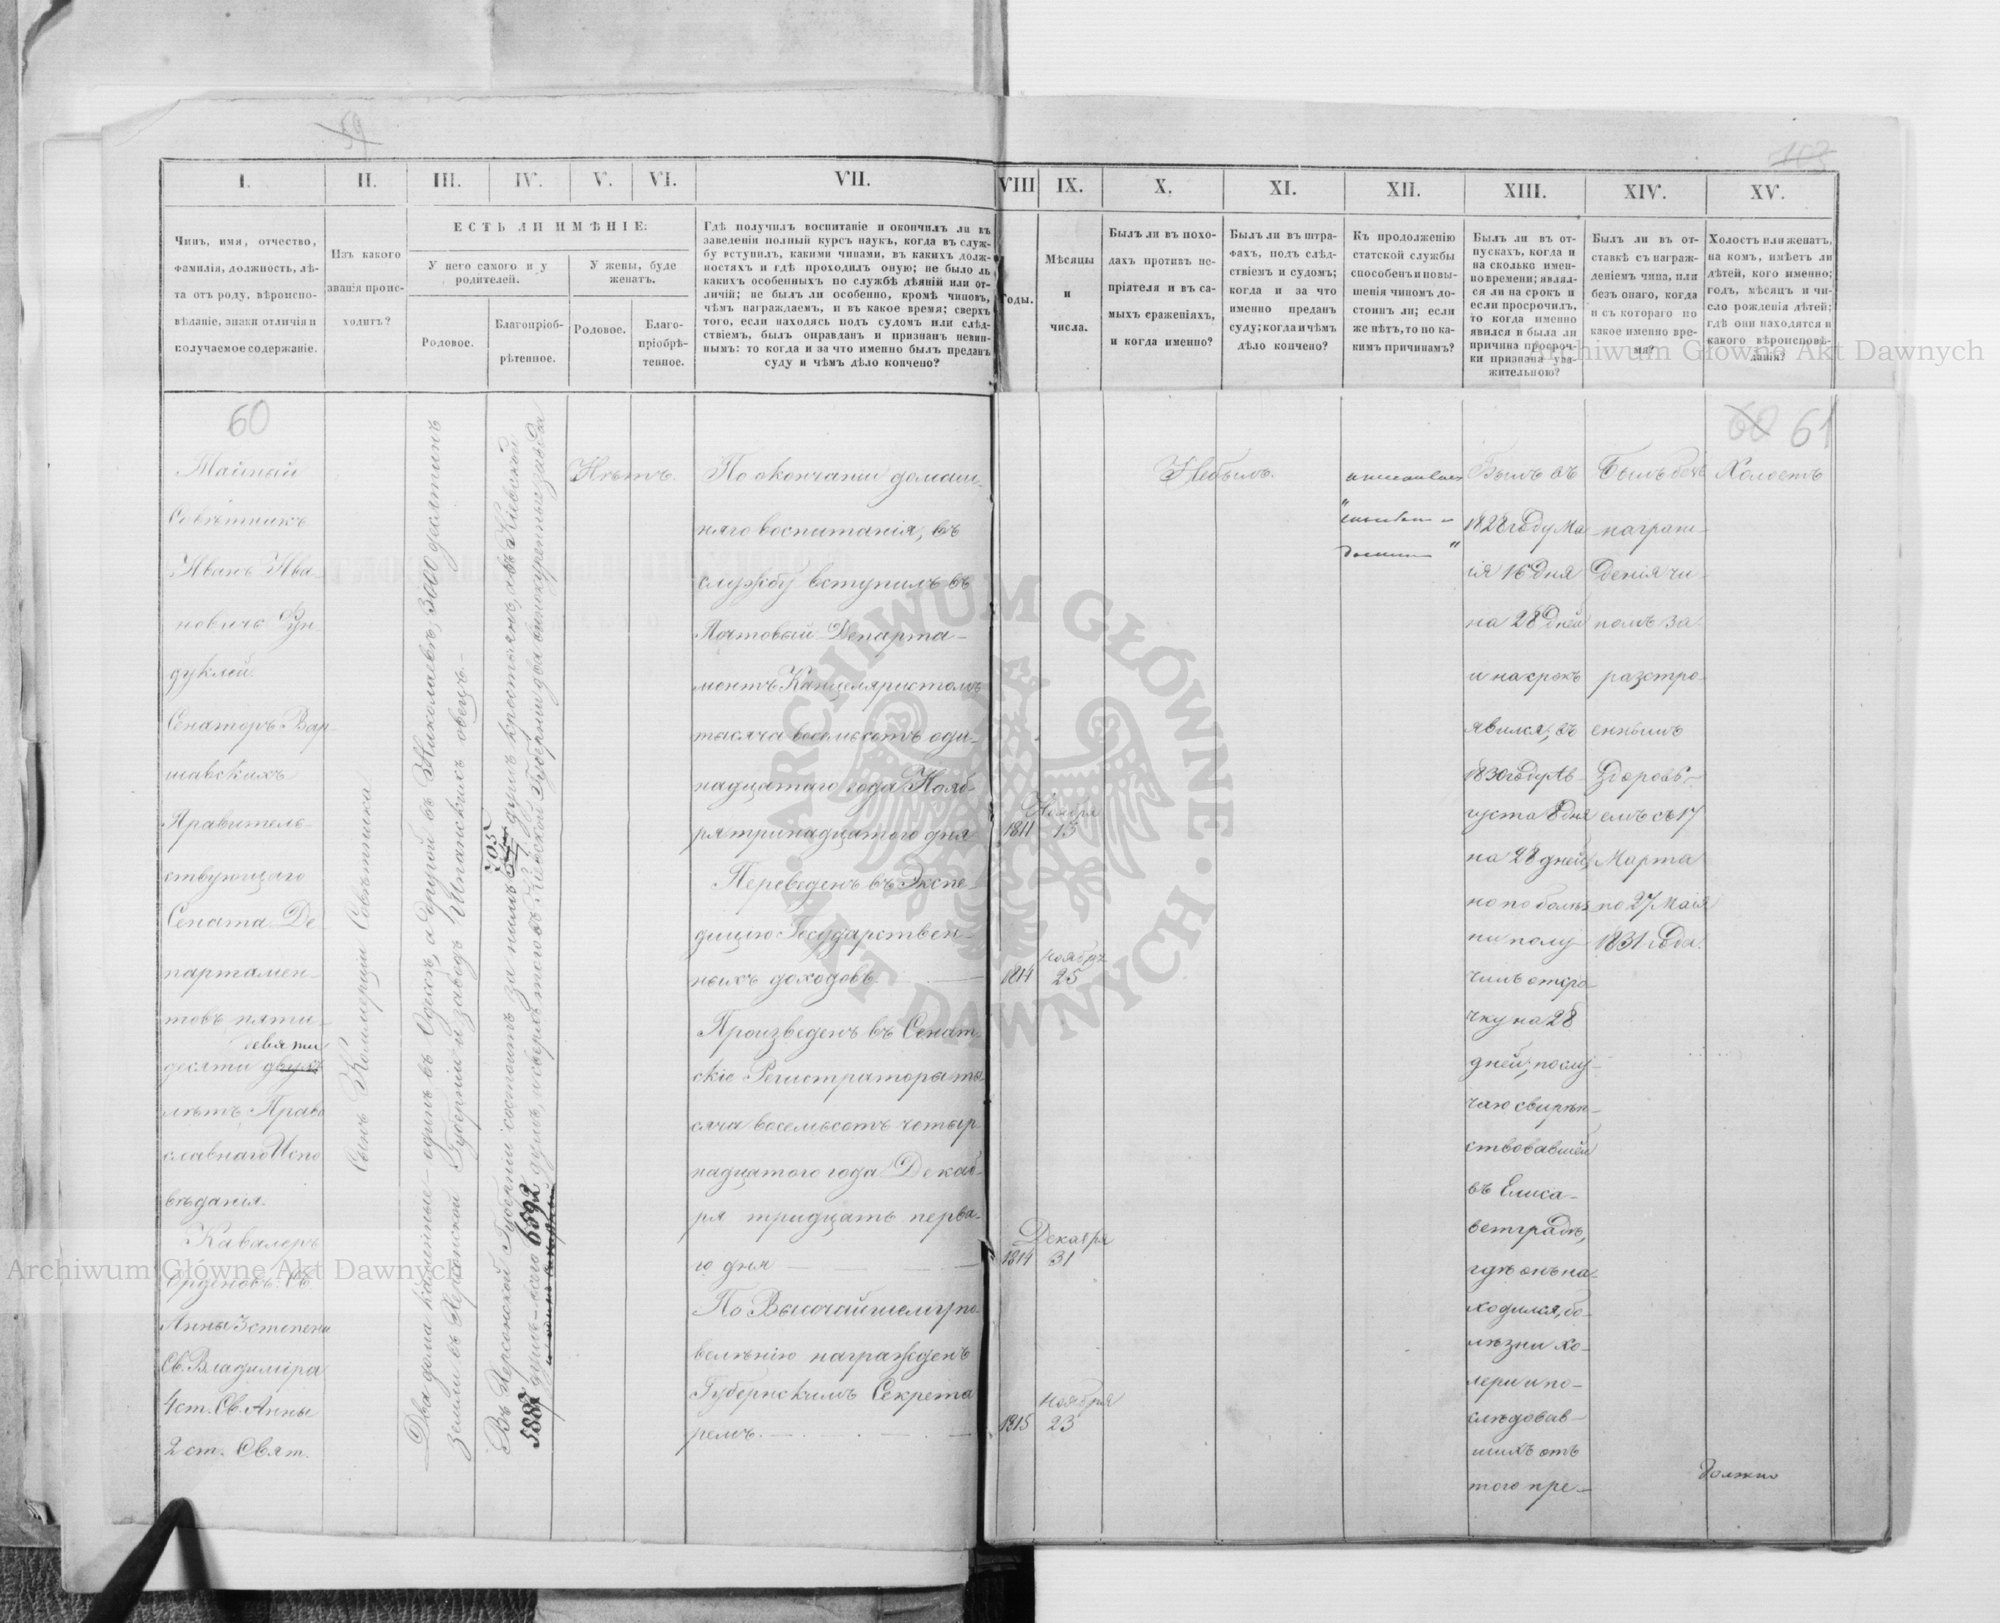 59
103
I.
II.
III.
IV.
V.
VI.
VII.
VIII
IX.
X.
XI.
XII.
XIII.
XIV.
XV.
Чинъ, имя, отчество,
фамилія, должность, лѣ-
та отъ роду, вѣроиспо-
вѣданіе, знаки отличія и
получаемое содержаніе.
Изъ какого
званія проис-
ходитъ?
ЕСТЬ ЛИ ИМѢНІЕ:
У него самого и у
родителей.
У жены, буде
женатъ.
Родовое.
Благопріоб-
рѣтенное.
Родовое.
Благо-
пріобрѣ-
тенное.
Гдѣ получилъ воспитаніе и окончилъ ли въ
заведеніи полный курсъ наукъ, когда въ служ-
бу вступилъ, какими чинами, въ какихъ долж-
ностяхъ и гдѣ проходилъ оную; не было ль
какихъ особенныхъ по службѣ дѣяній или от-
личій; не былъ ли особенно, кромѣ чиновъ,
чѣмъ награждаемъ, и въ какое время; сверхъ
того, если находясь подъ судомъ или слѣд-
ствіемъ, былъ оправданъ и признанъ невин-
нымъ: то когда и за что именно былъ преданъ
суду и чѣмъ дѣло кончено?
Годы.
Мѣсяцы
и
числа.
Былъ ли въ похо-
дахъ противъ не-
пріятеля и въ са-
мыхъ сраженіяхъ,
и когда именно?
Былъ ли въ штра-
фахъ, подъ слѣд-
ствіемъ и судомъ;
когда и за что
именно преданъ
суду; когда и чѣмъ
дѣло кончено?
Къ продолженію
статской службы
способенъ и повы-
шенія чиномъ до-
стоинъ ли; если
же нѣтъ, то по ка-
кимъ причинамъ?
Былъ ли въ от-
пускахъ, когда и
на сколько имен-
но времени; являл-
ся ли на срокъ и
если просрочилъ,
то когда именно
явился и была ли
причина просроч-
ки признана ува-
жительною?
Былъ ли въ от-
ставкѣ съ награж-
деніемъ чина, или
безъ онаго, когда
и съ котораго по
какое именно вре-
мя?
Холостъ или женатъ,
на комъ, имѣетъ ли
дѣтей, кого именно;
годъ, мѣсяцъ и чи-
сло рожденія дѣтей;
гдѣ они находятся и
какого вѣроисповѣ-
данія?
60
Тайный
Совѣтникъ
Иванъ Ива-
новичъ Фун-
дуклей.
Сенаторъ Вар-
шавскихъ
Правитель-
ствующаго
Сената Де-
партамен-
товъ, пяти-
девяти
десяти двухъ
лѣтъ, Право
славнаго Испо
вѣданія.
Кавалеръ
Орденовъ: Св.
Анны 3 степени
Св. Владиміра
4 ст. Св. Анны
2 ст. Свят.
Сынъ Коммерціи Совѣтника.
Два дома каменные – одинъ въ Одессѣ, а другой въ Николаевѣ; 3000 десятинъ
земли въ Херсонской Губерніи и заводъ Испанскихъ овецъ.–
Въ Херсонской Губерніи состоитъ за нимъ 705 душъ крестьянъ, а въ Кіевской
5887 душъ – всего 6592 душъ, и сверхъ того въ Кіевской Губерніи два винокуренныхъ завода
Нѣтъ.
По окончаніи домаш-
няго воспитанія, въ
службу вступилъ въ
Почтовый Департа-
ментъ Канцеляристомъ
тысяча восемьсотъ оди-
надцатаго года Нояб-
ря тринадцатаго дня
Переведенъ въ Экспе-
дицію Государствен-
ныхъ доходовъ.
Произведенъ въ Сенат-
скіе Регистраторы ты-
сяча восемьсотъ четыр-
надцатого года Декаб-
ря тридцать перва-
го дня
По Высочайшему по-
велѣнію награжденъ
Губернскимъ Секрета
ремъ.
Ноября
1811 13
Ноября
1814 25
Декабря
1814 31
Ноября
1815 23
Не былъ.
Былъ въ
1828 году Ма
ія 16 дня
на 28 дней
и на срокъ
явился; въ
1830 году Ав-
густа 8 дня
на 28 дней,
но по болѣз
ни полу-
чилъ отсро-
чку на 28
дней; по слу-
чаю свирѣп-
ствовавшей
въ Елиса-
ветградѣ,
гдѣ онъ на-
ходился, бо-
лѣзни хо-
леры и по-
слѣдовав-
шихъ отъ
того пре-
Былъ безъ
награж-
денія чи-
номъ за
разстро-
еннымъ
здоровь-
емъ съ 17
Марта
по 27 Маія
1831 года.
60 61
Холостъ
должно
Archiwum Główne Akt Dawnych
Archiwum Główne Akt Dawnych
ARCHIWUM GŁÓWNE AKT DAWNYCH